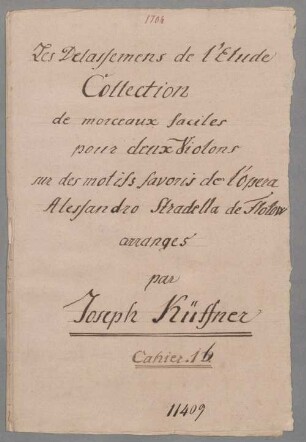 1704
Les Delassemens de l'Etude
Collection
de morceaux faciles
pour deux Violons
sur des motifs favoris de l'Opera
Alessandro Stradella de Flotow
arranges
par
Joseph Küffner
Cahier. 16
11409